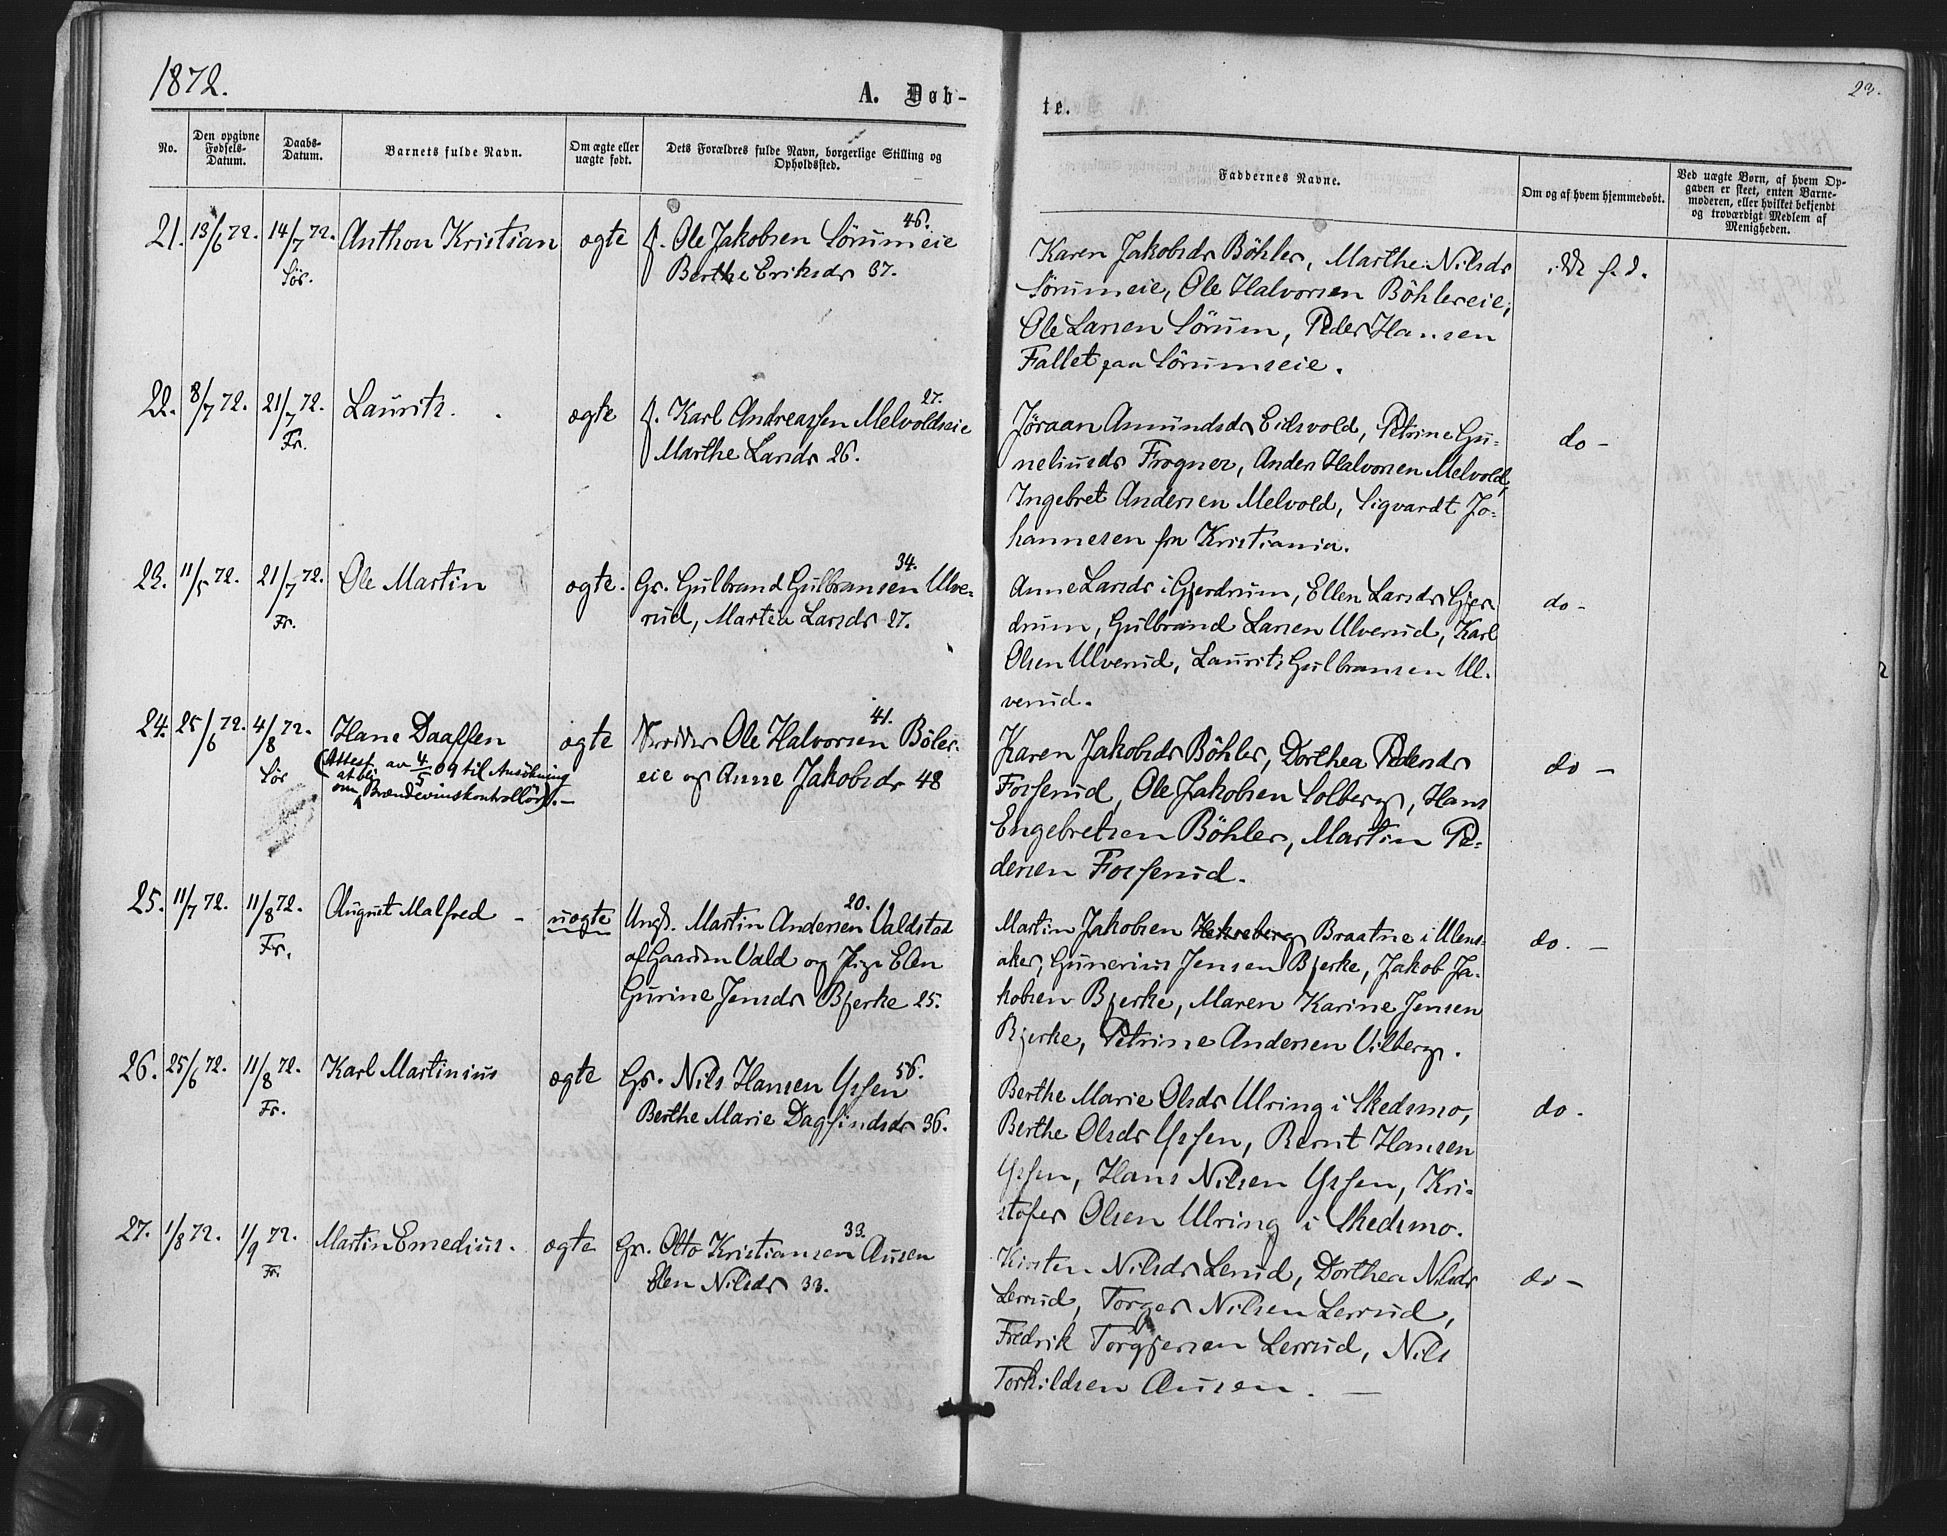 1872.
A. Døb-
te.
23.
No.
Den opgivne Fødsels-Datum.
Daabs-Datum.
Barnets fulde Navn.
Om ægte eller uægte født.
Dets Forældres fulde Navn, borgerlige Stilling og Opholdssted.
Faddernes Navne.
Om og af hvem hjemmedøbt.
Ved uægte Børn, af hvem Op-
gaven er skeet, enten Barne-
moderen, eller hvilket bekjendt
og troværdigt Medlem af
Menigheden.
21. 13/6 72. 14/7 72. Anthon Kristian ægte f. Ole Jakobsen Sörumeie 46.
Sör. Berthe Eriksdr 37.
Karen Jakobsdr Böhler, Marthe Nilsdr
Sörumeie, Ole Halvorsen Böhlereie,
Ole Larsen Sörum, Peder Hansen
Fallet paa Sörumseie.
22. 8/7 72. 21/7 72. Laurits. ægte f. Karl Andreassen Melvoldseie 27.
Fr. Marthe Larsdr 26.
Jöraan Amundsdr Eidsvold, Petrine Gu-
neliusdr Frogner, Anders Halvorsen Melvold,
Ingebret Andersen Melvold, Sigvardt Jo-
hannesen fra Kristiania.
do -
23. 11/5 72. 21/7 72. Ole Martin ægte. Gr. Gulbrand Gulbransen Ulve- 34.
Fr. rud, Martea Larsdr 27.
Anne Larsdr i Gjerdrum, Ellen Larsdr Gjer-
drum, Gulbrand Larsen Ulverud, Karl
Olsen Ulverud, Laurits Gulbransen Ul-
verud.
do -
24. 25/6 72. 4/8 72. Hans Daassen ægte Ole Halvorsen Böler- 41.
Sör eie og Anne Jakobsdr 48
(Attest av 4/5 09 til Ansökning
om at bli Brændevinskontrollör). -
Karen Jakobsdr Böhler, Dorthea Pedersdr
Fosserud, Ole Jakobsen Solberg, Hans
Engebretsen Böhler, Martin Pe-
dersen Fosserud.
do -
25. 11/7 72. 11/8 72. August Malfred - uægte Ungk. Martin Andersen Valdstad 20.
Fr. af Gaarden Vald og Pige Elen
Gurine Jensdr Bjerke 25.
Martin Jakobsen Braatne i Ulens-
aker, Gunerius Jensen Bjerke, Jakob Ja-
kobsen Bjerke, Maren Karine Jensen
Bjerke, Petrine Andersen Vilberg.
do. -
26. 25/6 72. 11/8 72. Karl Martinius ægte Gr. Nils Hansen Ys​sen 56.
Fr. Berthe Marie Dagfindsdr 36.
Berthe Marie Olsdr Ulring i Skedsmo,
Berthe Olsdr Yssen, Bernt Hansen
Yssen, Hans Nilsen Yssen, Kri-
stofer Olsen Ulring i Skedsmo.
do -
27. 1/8 72. 1/9 72. Martin Emedius. ægte Gr. Otto Kristiansen Ausen 33.
Fr. Elen Nilsdr 33.
Kirsten Nilsdr Lerud, Dorthea Nilsdr
Lerrud, Torger Nilsen Lerrud,
Fredrik Torgjersen Lerrud, Nils
Torkildsen Ausen. -
do -